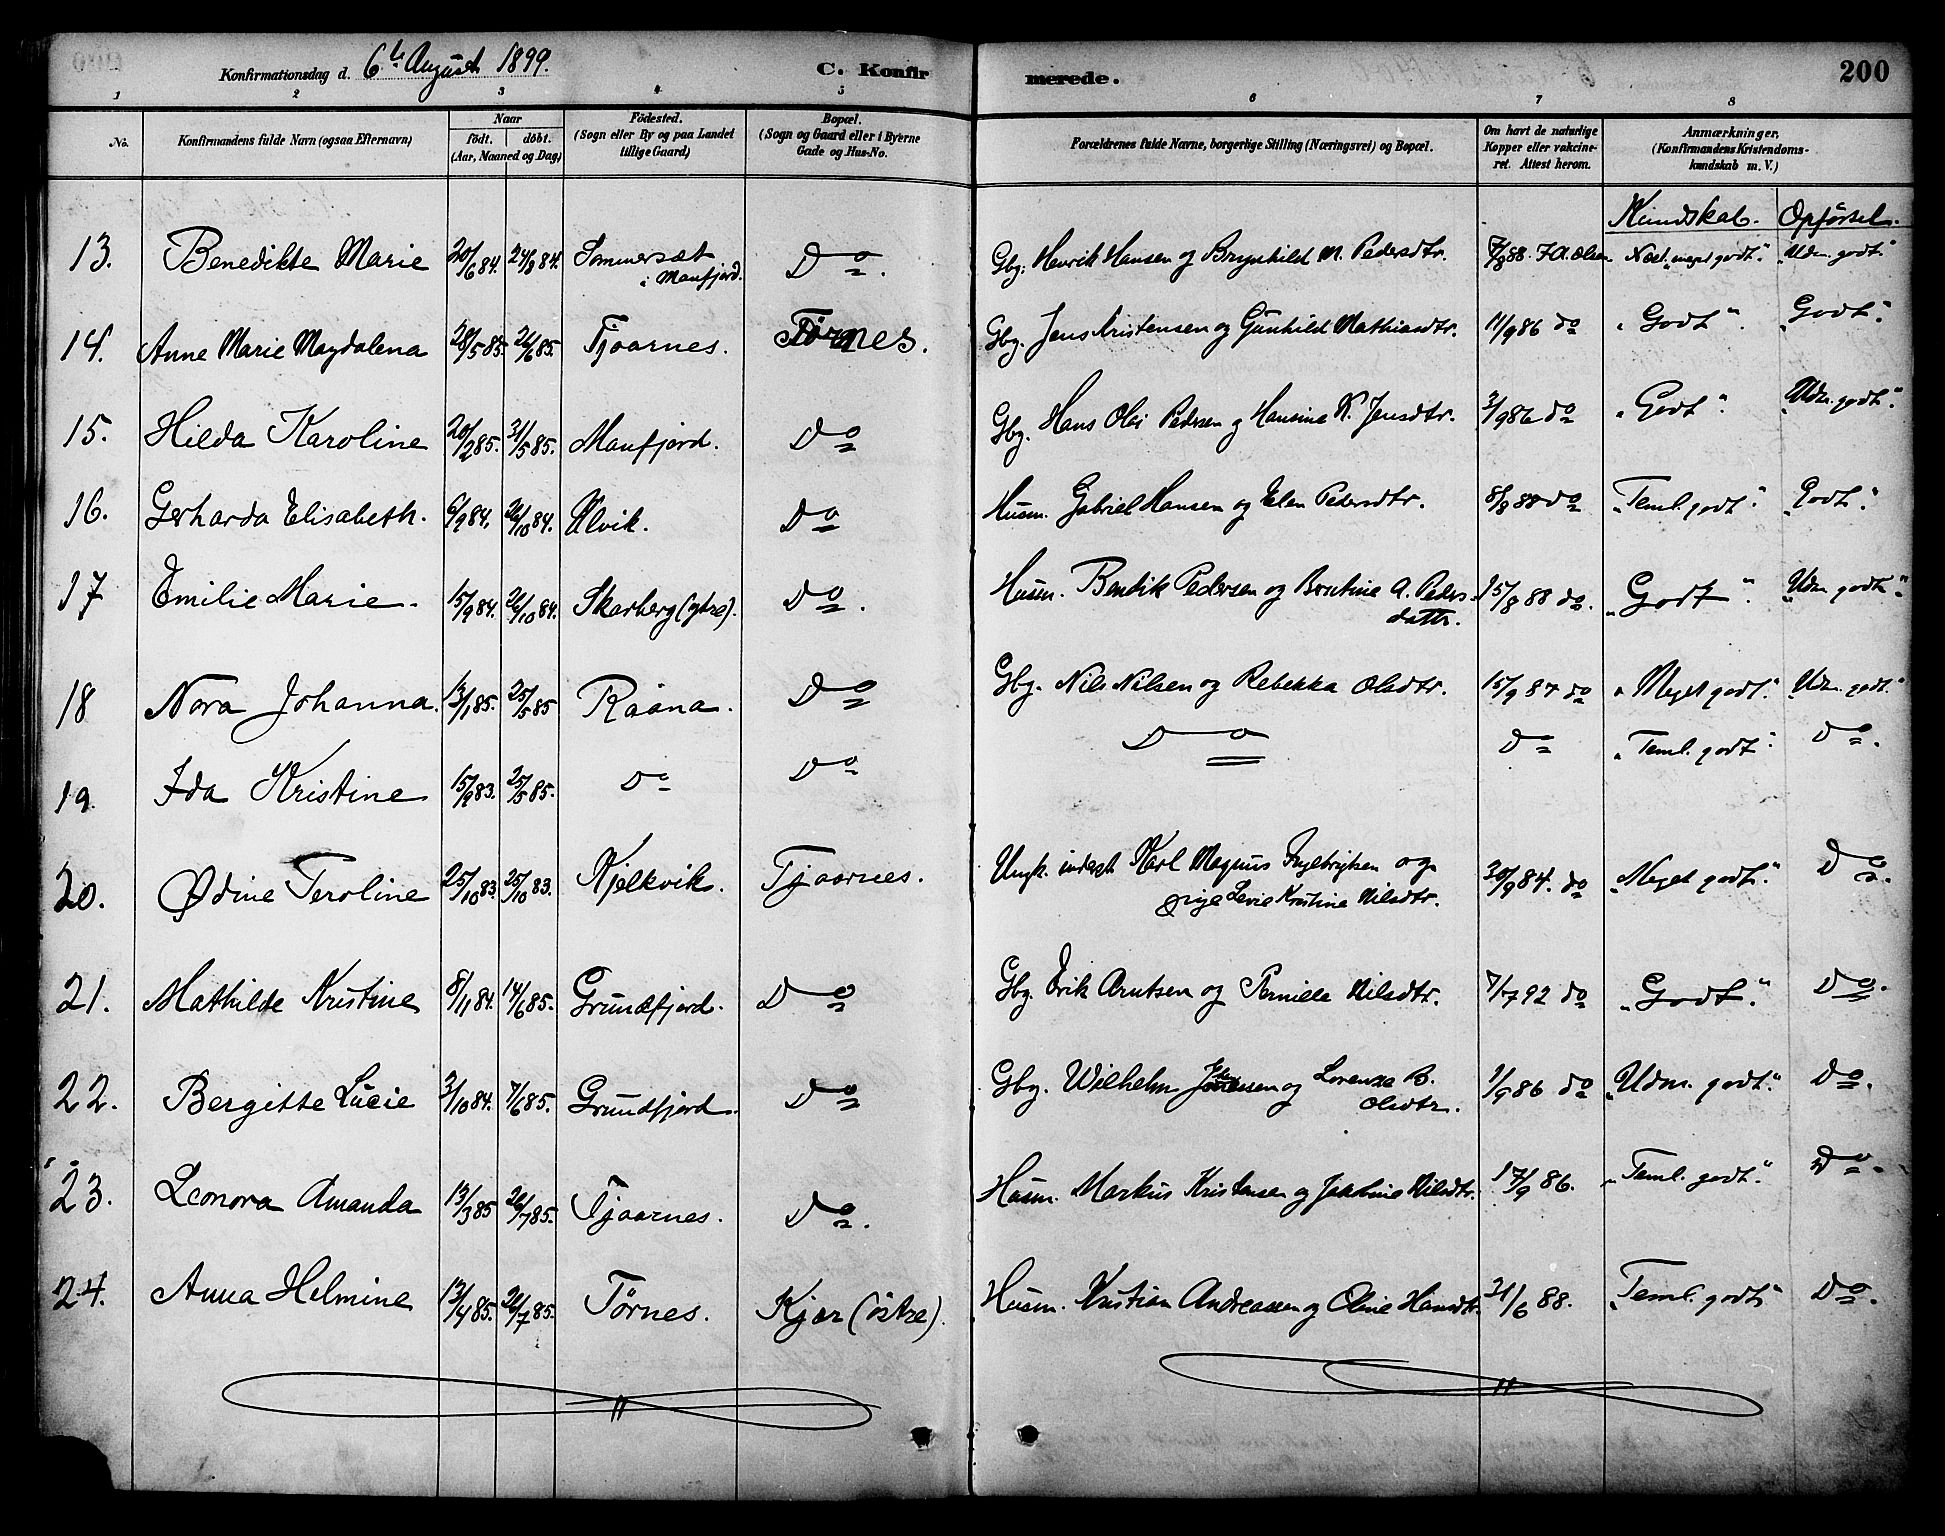 Konfirmationsdag d. 6te August 1899. C. Konfir merede. 200
1 2 3 4 5 6 7 8
No. Konfirmandens fulde Navn (ogsaa Efternavn) Naar født. døbt. (Aar, Maaned og Dag) Fødested. (Sogn eller By og paa Landet tillige Gaard) Bopæl. (Sogn og Gaard eller i Byerne Gade og Hus-No. Forældrenes fulde Navne, borgerlige Stilling (Næringsvei) og Bopæl. Om havt de naturlige Kopper eller vakcineret. Attest herom. Anmærkninger. (Konfirmandens Kristendomskundskab m. V.)
Kundskab. Opførsel.
13. Benedikte Marie 20/6 84. 24/8 84. Sommersæt i Maufjord. Do. Gbg. Henrik Hansen og Brynhild M. Pedersdtr. 7/8 88. J A. Olsen Næst "meget godt". "Udm. godt".
14. Anne Marie Magdalena 28/5 85. 26/6 85. Tjaarnes. Tørnes. Gbg. Jens Kristensen og Gunhild Mathiasdtr. 11/9 86 do "Godt". "Godt".
15. Hilda Karoline 20/2 85. 31/5 85. Maufjord. Do Gbg. Hans Olai Pedersen og Hansine K. Jensdtr. 3/9 86 do "Godt". "Udm. godt".
16. Gerharda Elisabeth. 6/9 84. 26/10 84. Ulvik. Do Husm. Gabriel Hansen og Elen Pedersdtr. 8/8 88 do "Teml. godt". "Godt".
17 Emilie Marie. 15/9 84. 26/10 84. Skarberg (ytre). Do. Husm. Bendik Pedersen og Bentine A. Peders-
dattr. 15/8 88 do. "Godt". "Udm. godt".
18 Nora Johanna. 13/1 85. 25/5 85 Raana. Do Gbg. Nils Nilsen og Rebekka Olsdtr. 15/9 87 do "Meget godt". "Udm. godt".
19. Ida Kristine 15/9 83. 25/5 85. Do Do Do Do "Teml. godt". Do.
20. Ødine Teroline 25/10 83. 25/10 83. Kjelkvik. Tjaarnes. Ungk. inderst Karl Magnus Ingebrigtsen og
pige Levie Kristine Nilsdtr. 30/9 84. do "Meget godt". Do.
21. Mathilde Kristine 8/11 84. 14/6 85. Grundfjord. Do Gbg. Erik Arntsen og Pernille Nilsdtr. 7/7 92 do "Godt". Do.
22. Bergitte Lucie 3/10 84. 7/6 85. Grundfjord. Do Gbg. Wilhelm og Lorensa B.
Olsdtr. 1/9 86 do "Udm. godt". Do.
23. Leonora Amanda 13/3 85 26/7 85. Tjaarnes. Do. Husm. Markus Kristensen og Jakobine Nilsdtr. 17/9 86. "Teml. godt". Do.
24. Anna Helmine 13/4 85. 26/7 85. Tørnes. Kjær (østre). Husm. Kristian Andreassen og Oline Hansdtr. 21/6 88. "Teml. godt" Do.